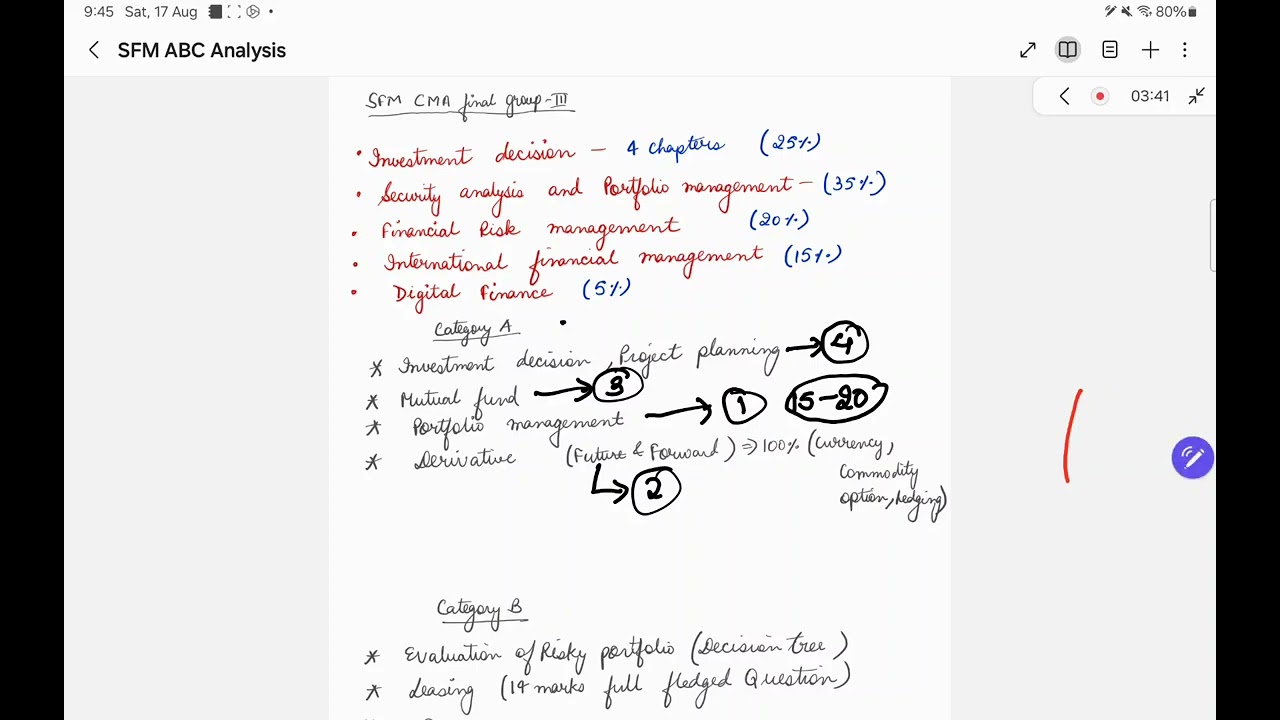 9:45 Sat, 17 Aug
80%
SFM ABC Analysis
03:41
SFM CMA final group-III
• Investment decision – 4 chapters (25%)
• Security analysis and Portfolio management – (35%)
• Financial Risk management (20%)
• International financial management (15%)
• Digital Finance (5%)
Category A
* Investment decision, Project planning → 4
* Mutual fund → 3
* Portfolio management → 1 15-20
* Derivative (Future & Forward) ⇒ 100% (currency,
commodity
option, hedging)
↳ 2
Category B
* Evaluation of Risky portfolio (Decision tree)
* Leasing (14 marks full fledged Question)